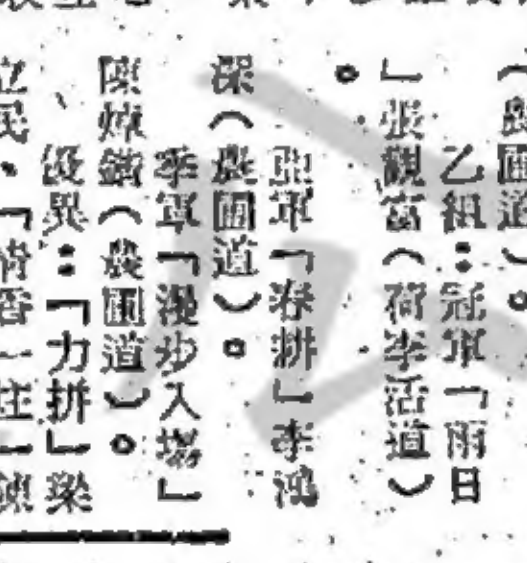 (農圃道)。
乙組:冠軍「雨日
」張觀富(荷李活道)
。
亞軍「春耕」李鴻
深(農圃道)。
季軍「漫步入場」
陳焯鏘(農圃道)。
優異:「力拼」梁
立民、「清香一炷」陳